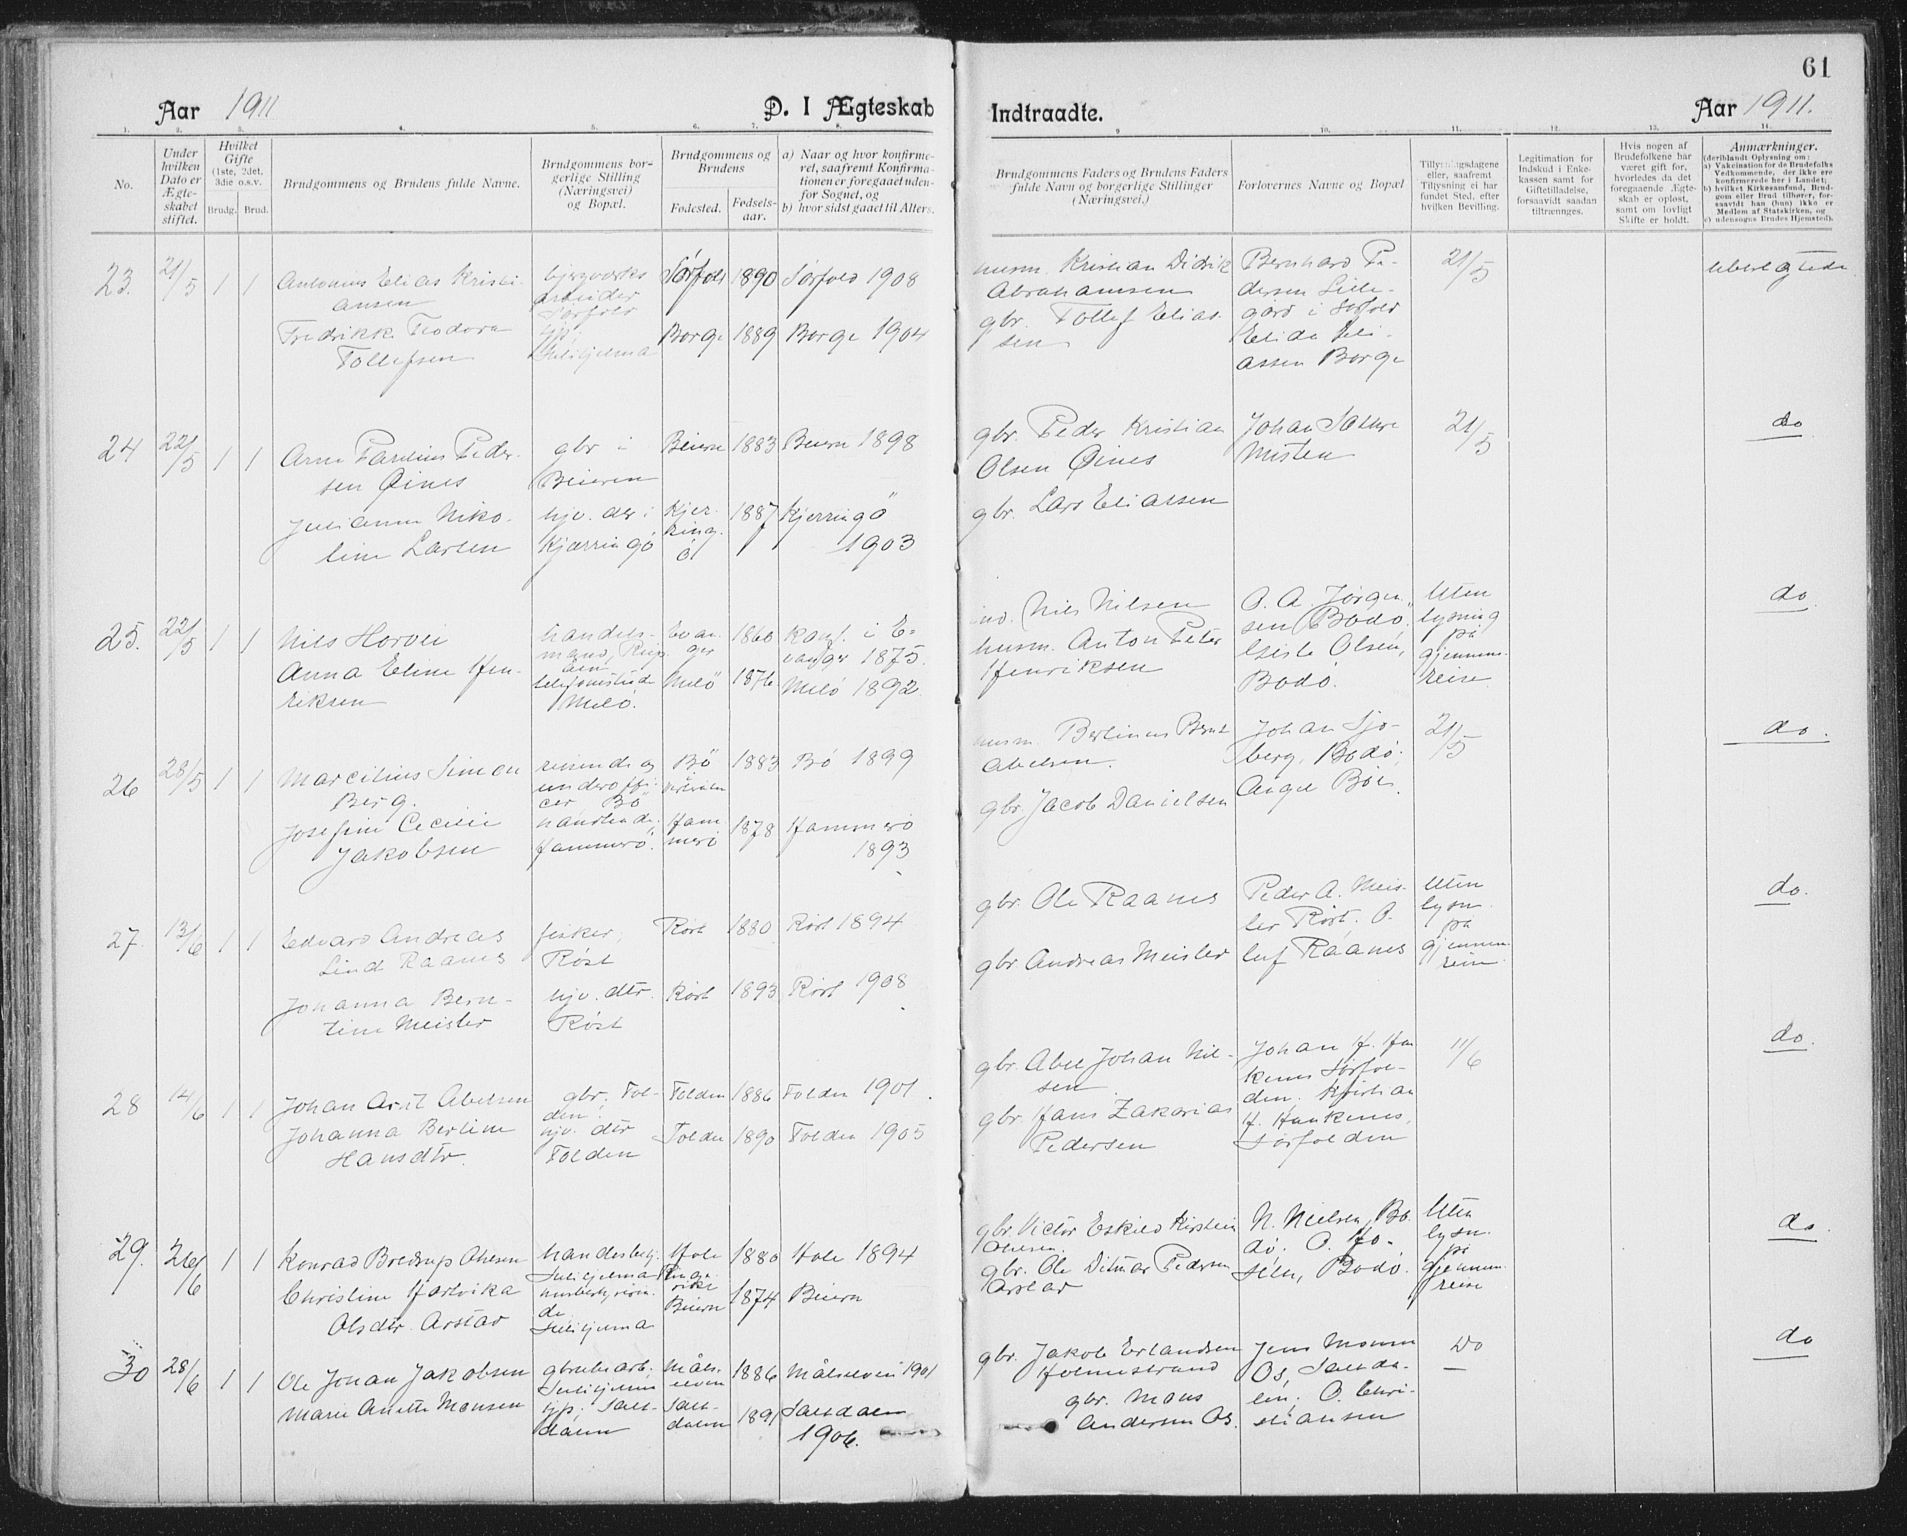 61
Aar 1911
D. I Ægteskab
Indtraadte.
Aar 1911.
1. 2. 3. 4. 5. 6. 7. 8. 9. 10. 11. 12. 13. 14.
No.
Under hvilken Dato er Ægteskabet stiftet.
Hvilket Gifte (1ste, 2det, 3die o.s.v.
Brudg. Brud.
Brudgommens og Brudens fulde Navne.
Brudgommens borgerlige Stilling (Næringsvei) og Bopæl.
Brudgommens og Brudens
Fødested. Fødselsaar.
a) Naar og hvor konfirmeret, saafremt Konfirmationen er foregaaet udenfor Sognet, og
b) hvor sidst gaaet til Alters.
Brudgommens Faders og Brudens Faders fulde Navn og borgerlige Stillinger (Næringsvei.)
Forlovernes Navne og Bopæl
Tillysningsdagene eller, saafremt Tillysning ei har fundet Sted, efter hvilken Bevilling.
Legitimation for Indskud i Enkekassen samt for Giftetilladelse, forsaavidt saadan tiltrænges.
Hvis nogen af Brudefolkene har været gift før, hvorledes da det foregaaende Ægteskab er opløst, samt om lovligt Skifte er holdt.
Anmærkninger.
(deriblandt Oplysning om:
a) Vakcination for de Brudefolks Vedkommende, der ikke ere konfirmerede her i Landet;
b) hvilket Kirkesamfund, Brudgom eller Brud tilhører, forsaavidt han (hun) ikke er Medlem af Statskirken, og
c) udensogns Brudes Hjemsted).
23. 21/5 1 1
Antonius Elias Kristiansen
Fredrikke Teodora
Tollefsen
bjergværksarbeider
Sørfold
Sulitjelma
Sørfold 1890 Sørfold 1908
Borge 1889 Borge 1904
husm. Kristian Didrik
Abrahamsen
gbr. Tollef Eliassen
Bernhard Pedersen
gård i Sørfold
Borge
21/5
24 22/5 1 1
Arne Parelius Pedersen Øines
Julianne Nikoline Larsen
gbr i
Beieren
hjv. der i
Kjærringö
Beiern 1883 Beiern 1898
Kjerringö 1887 Kjerringö
1903
gbr. Peder Kristian
Olsen Øines
gbr. Lars Eliassen
Johan Sætre
Misten
21/5
do
25. 22/5 1 1
Nils Horvei
Anna Eline Henriksen
handelsmand,
Melö.
Evanger 1860 konf. i Evanger 1875.
Melö 1876 Melö 1892.
Nils Nilsen
husm. Anton Peter
Henriksen
O. A. Jørgensen, Bodö,
Olsen,
Bodö.
Uten
lysning
på
gjennemreise
do
26 28/5 1 1
Marcilius Simon
Berg.
Josefine Cecilie
Jakobsen
reisende og
underofficer Bö
handlende
Hammerö.
Bö 1883 Bö 1899
Vesterålen
Hammerö 1878 Hammerö
1893
husm. Berlinus Bernt
Abelsen.
gbr. Jacob Danielsen
Johan Sjøberg, Bodö,
21/5
do.
27. 13/6 1 1
Edvard Andreas
Lind Raanes
Johanna Berntine Meisler
fisker,
Røst
hjv. dtr.
Røst
Røst 1880 Røst 1894
Røst 1893 Røst 1908
gbr. Ole Raanes
gbr. Andreas Meisler
Peder A. Meisler Røst. Oluf Raanes
Uten
lysn.
på
gjennemreise
do.
28 14/6 1 1
Johan Arnt Abelsen
Johanna Berline
Hansdtr.
gbr. Folden;
hjv. dtr
Folden
Folden 1886 Folden 1901.
Folden 1890 Folden 1905
gbr. Abel Johan Nilsen
gbr. Hans Zakarias
Pedersen
Johan H. Hankenes Sørfolden. Kristian
H. Hankenes,
Sørfolden
11/6
do.
29. 26/6 1 1
Konrad Bredrup Olsen
Christine Hartvika
Olsdtr. Arstad
handelsbetj.
Sulitjelma
Sulitjelma
Hole 1880 Hole 1894
Ringerike
Beiern 1874 Beiern
gbr. Victor Eskild Kirstein
Olsen.
gbr. Ole Ditmar Pedersen
Arstad
N. Nielsen, Bodö.
Bodö.
Uten
lysn.
på
gjennemreise
do.
30 28/6 1 1
Ole Johan Jakobsen
Marie Anette Monsen
grubearb.
Sulitjelma
tjp. Saltdalen
Målselven 1886 Målselven 1901
Saltdalen 1891 Saltdalen
1906.
gbr. Jakob Erlandsen
Holmestrand
gbr. Mons
Andersen Os.
Jens Monsen
Os, Saltdalen; O. Christiansen
Do
do